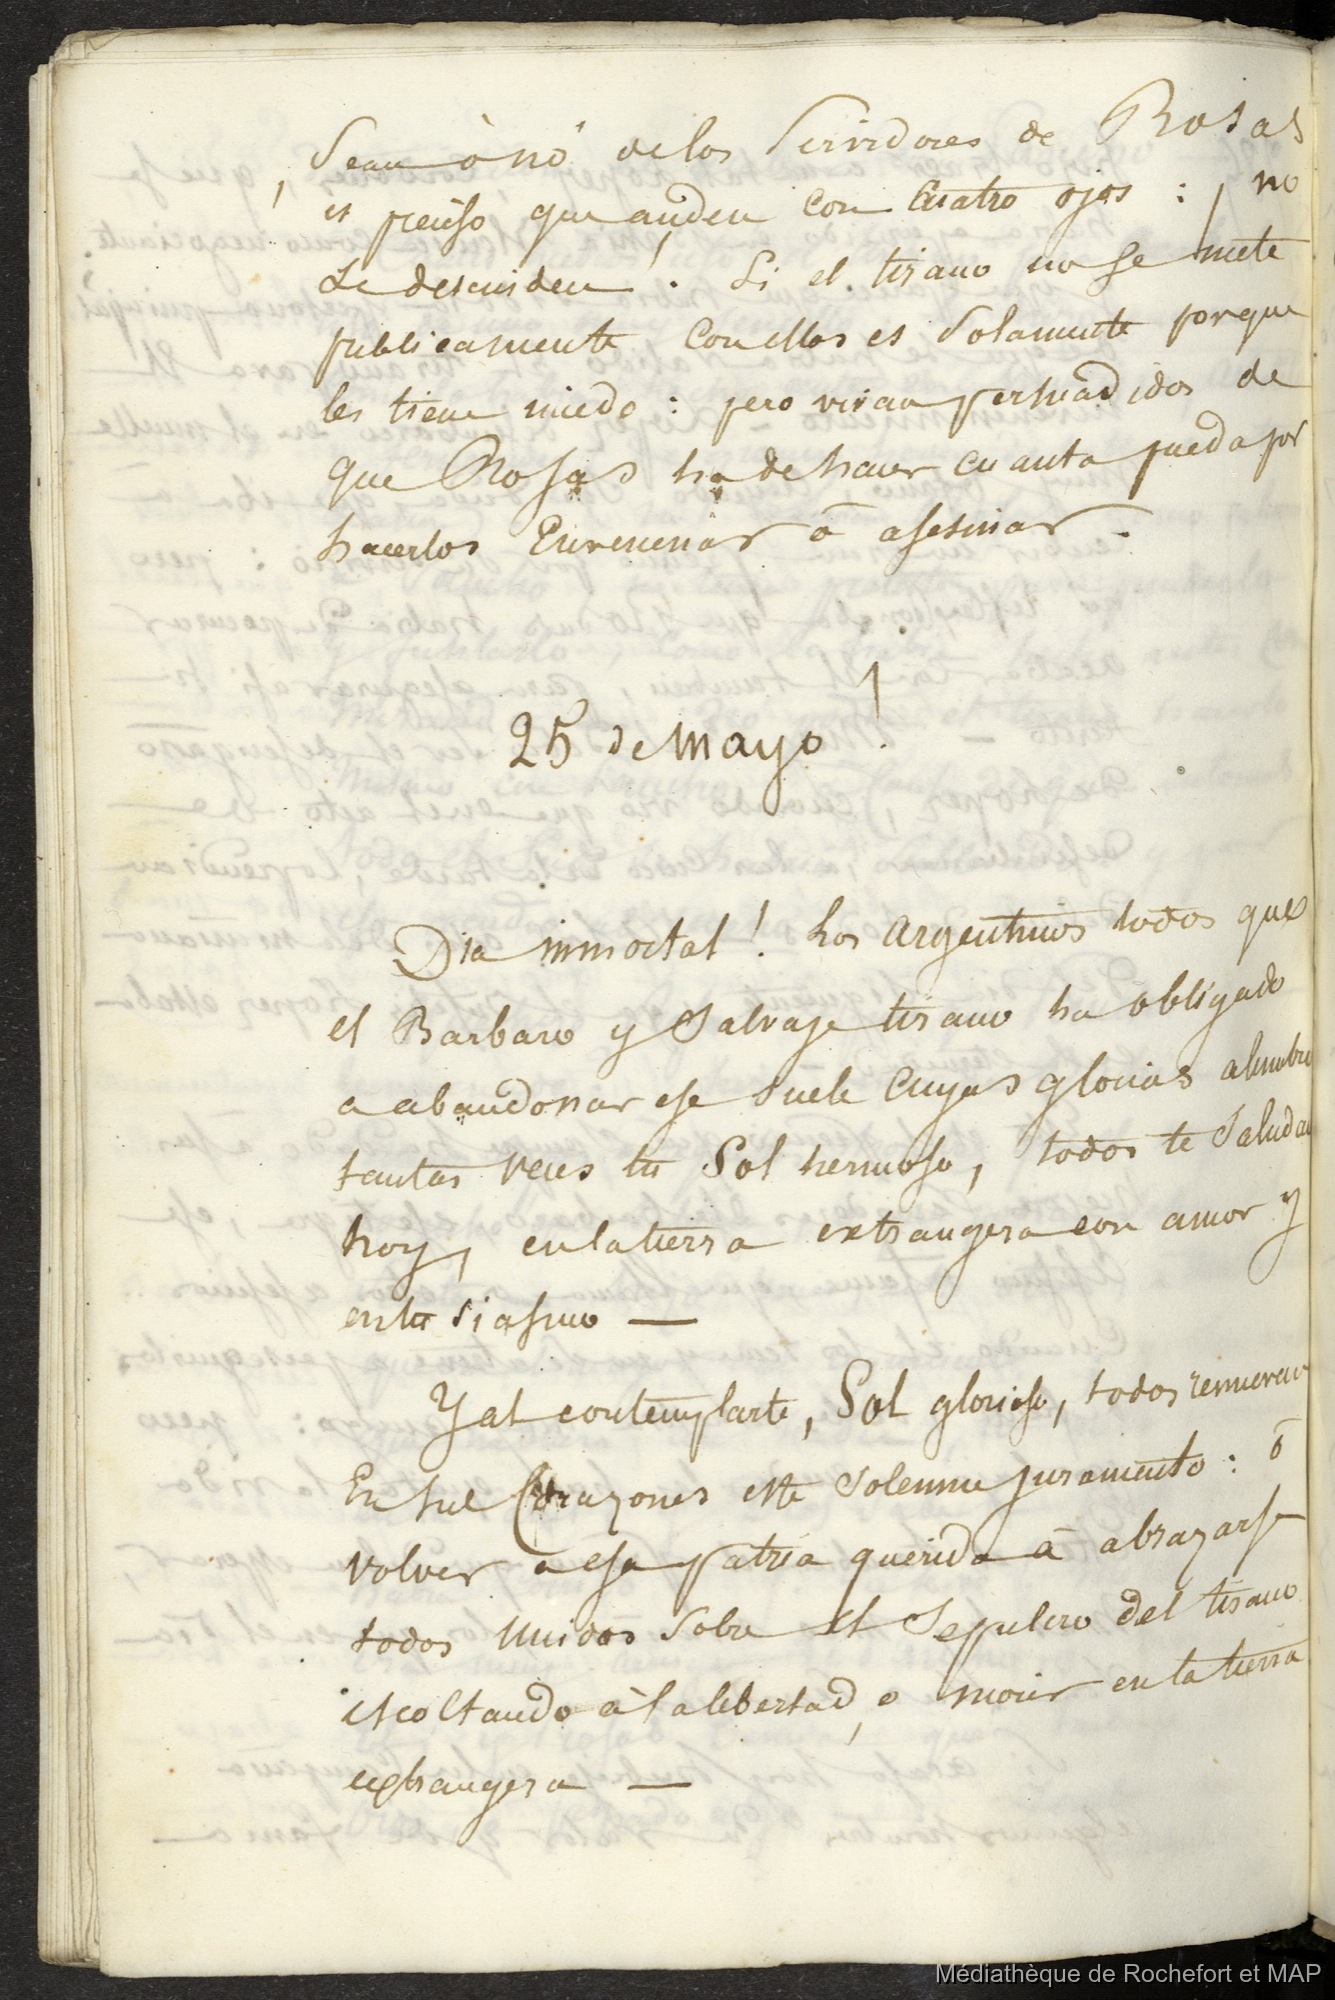 Sean ò nó delos Servidores de Rosas
es preciso que anden con Cuatro ojos : ¡ no
Se descuiden ! . Si el tirano no se mete
publicamente Con ellos es Solamente porque
les tiene miedo : pero vivan persuadidos de
que Rosas ha de hacer cuanto pueda por
hacerlos Envenenar ó asesinar .
25 de Mayo !
Dia inmortal ! Los Argentinos todos que
el Barbaro y Salvaje tirano ha obligado
a abandonar ese Suelo Cuyas glorias alumbro
tantas veces tu Sol hermoso, todos te Saludan
hoy, en la tierra extrangera con amor y
entusiasmo —
Y al contemplarte, Sol glorioso, todos renuevan
En sus Corazones este Solemne juramento : ó
volver a esa patria querida á abrazarse
todos Unidos Sobre el Sepulcro del tirano
escoltando à la libertad, o morir en la tierra
extrangera —
Médiathèque de Rochefort et MAP